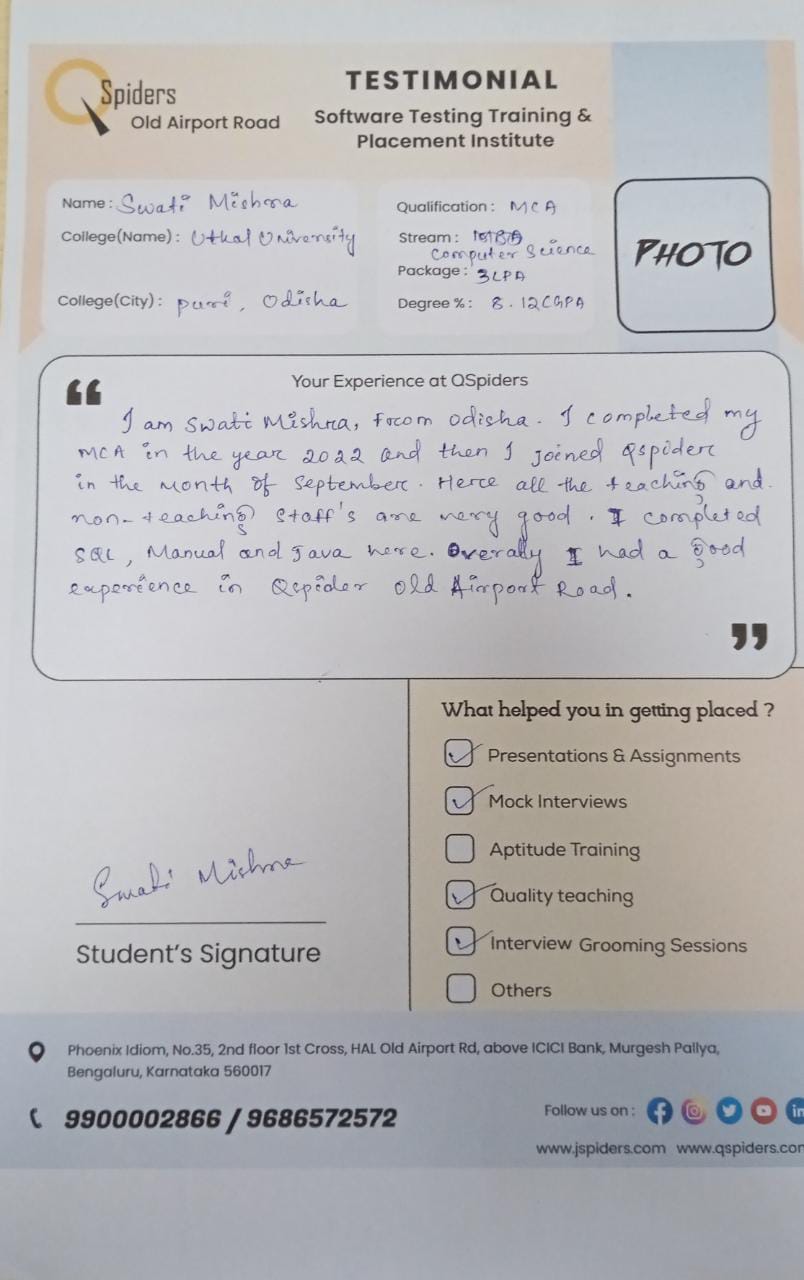 QSpiders
Old Airport Road
TESTIMONIAL
Software Testing Training &
Placement Institute
Name : Swati Mishra
College(Name) : Utkal University
College(City) : puri, Odisha
Qualification : MCA
Stream :
Computer Science
Package : 3LPA
Degree % : 8.12CGPA
PHOTO
“
Your Experience at QSpiders
I am Swati Mishra, From Odisha. I completed my
MCA in the year 2022 and then I joined Qspider
in the Month of September. Here all the teaching and
non-teaching Staff's are very good. I completed
SQL, Manual and Java here. Overally I had a good
experience in Qspider Old Airport Road.
”
What helped you in getting placed ?
Presentations & Assignments
Mock Interviews
Aptitude Training
Quality teaching
Interview Grooming Sessions
Others
Swati Mishra
Student's Signature
Phoenix Idiom, No.35, 2nd floor 1st Cross, HAL Old Airport Rd, above ICICI Bank, Murgesh Pallya,
Bengaluru, Karnataka 560017
9900002866 / 9686572572
Follow us on :
www.jspiders.com www.qspiders.com